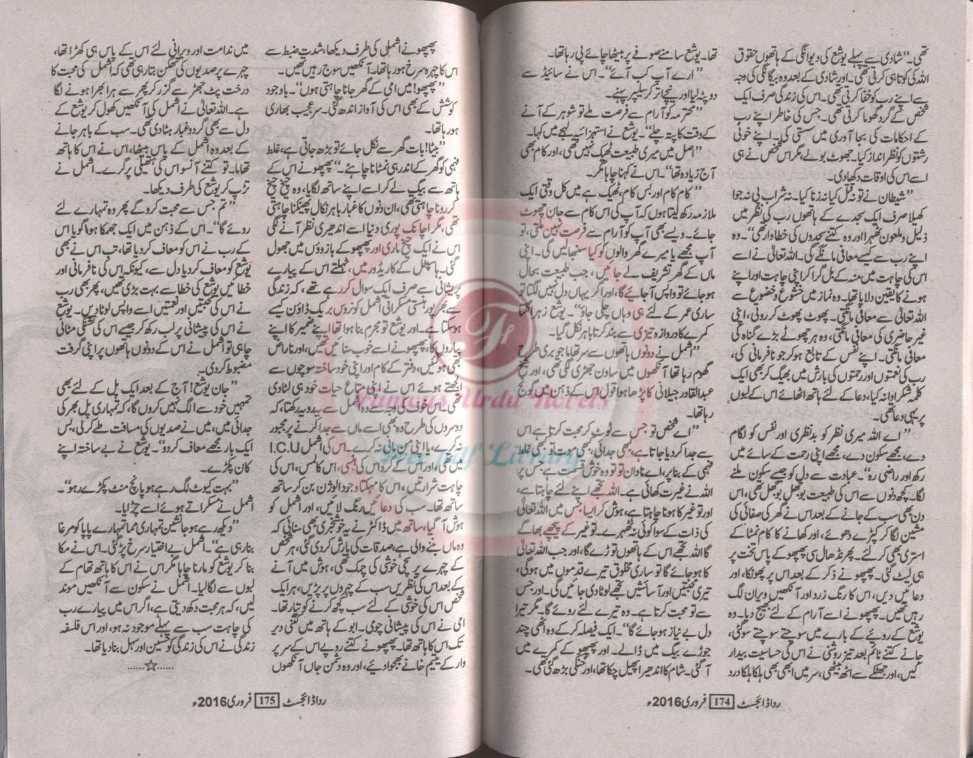 تھی۔ “شادی سے پہلے یوشع کی دیوانگی کے ہاتھوں حقوق
اللہ کی کوتاہی کرتی تھی۔ اور شادی کے بعد وہ بیگانگی کی وجہ
سے اپنے رب کو خفا کرتی تھی۔ اس کی زندگی صرف ایک
شخص کے گرد گھوما کرتی تھی۔ جس کی خاطر اپنے رب
کے احکامات کی بجا آوری میں سستی کی۔ اپنے خونی
رشتوں کو نظر انداز کیا۔ جھوٹ بولے، مگر اس شخص نے ہی
اسے اس کی اوقات دکھا دی۔
“شیطان نے تو نہ قتل کیا نہ زنا کیا۔ نہ شراب پی نہ جوا
کھیلا صرف ایک سجدے کے ہاتھوں رب کی نظر میں
ذلیل و ملعون ٹھہرا اور وہ کتنے سجدوں کی خطاوار تھی”۔ وہ
اپنے رب سے کیسے معافی مانگے گی۔ اللہ تعالیٰ نے اسے
اس کی چاہت میں منہ کے بل گرا کر اپنی چاہت اور اپنے
ہونے کا یقین دلایا تھا۔ وہ نماز میں خشوع و خضوع سے
اللہ تعالیٰ سے معافی مانگتی۔ پھوٹ پھوٹ کر روتی، اپنی
غیر حاضری کی معافی مانگتی، وہ ہر چھوٹے بڑے گناہ کی
معافی مانگتی۔ اپنے نفس کے تابع ہو کر جو نافرمانی کی،
رب کی نعمتوں اور رحمتوں کی بارش میں بھیگ کر بھی ایک
کلمہ شکر ادا نہ کیا، دعا کے لئے ہاتھ اٹھائے اس کے لبوں
پر یہی دعا تھی۔
“اے اللہ میری نظر کو بدنظری اور نفس کو لگام
دے، مجھے سکون دے، مجھے اپنی رحمت کے سائے میں
رکھ اور راضی رہ”۔ عبادت سے دل کو جیسے سکون ملنے
لگا۔ کچھ دنوں سے اس کی طبیعت بوجھل بوجھل تھی، اس
دن بھی سب کے جانے کے بعد اس نے گھر کی صفائی کی
مشین لگا کر کپڑے دھوئے، اور کھانے کا کام نمٹا کے
استری بھی کر لئے۔ پھر نڈھال سی پھپھو کے پاس تخت پر
ہی لیٹ گئی۔ پھپھو نے ذکر کے بعد اس پر پھونکا، اور
دعائیں دیں، اس کا رنگ زرد اور آنکھیں ویران لگ
رہی تھیں۔ پھپھو نے اسے آرام کے لئے بھیج دیا۔ وہ
یوشع کے روئے کے بارے میں سوچتے سوچتے سوگئی،
جانے کتنے ٹائم بعد تیز روشنی نے اس کی حساسیت بیدار
کیں، اور جھٹکے سے اٹھ بیٹھی، سر میں ابھی بھی ہلکا ہلکا درد
تھا۔ یوشع سامنے صوفے پر بیٹھا چائے پی رہا تھا۔
“ارے آپ کب آئے”۔ اس نے سائیڈ سے
دوپٹہ لیا اور نیچے اتر کر سلیپر پہنے۔
“محترمہ کو آرام سے فرصت ملے تو شوہر کے آنے
کے وقت کا پتہ چلے”۔ یوشع نے استہزائیہ لہجے میں کہا۔
“اصل میں میری طبیعت ٹھیک نہیں تھی، اور کام بھی
آج زیادہ تھا”۔ اس نے کہنا چاہا مگر۔
“کام کام اور بس کام، ٹھیک ہے میں کل وقتی ایک
ملازمہ رکھ لیتا ہوں کہ آپ کی اس کام سے جان چھوٹ
جائے۔ ویسے بھی آپ کو آرام سے فرصت نہیں ملتی، تو
آپ مجھے یا میرے گھر والوں کو کیا سنبھالیں گی۔ اپنی
ماں کے گھر تشریف لے جائیں، جب طبیعت بحال
ہو جائے تو واپس آجائے گا، اور اگر یہاں دل نہیں لگتا تو
ساری عمر کے لئے ہی وہاں چلی جاؤ”۔ یوشع زہر اگلتا
کمرے کا دروازہ تیزی سے بند کرتا باہر نکل گیا۔
اشمل نے دونوں ہاتھوں سے سر تھاما جو بری طرح
گھوم رہا تھا آنکھوں میں ساون جھڑی لگی تھی، اور شیخ
عبدالقادر جیلانی کا پڑھا ہوا قول اس کے ذہن میں گونج
رہا تھا۔
“اے شخص تو جس سے ٹوٹ کر محبت کرتا ہے اس
سے جدا کر دیا جاتا ہے، بھی جدائی، بھی موت تو بھی غلط
فہمی کے بنا پر، بلے ناداں تو تو وہ خوش قسمت ہے جس پر
اللہ نے غیرت کھائی ہے۔ اللہ تجھے اپنے لئے چاہتا ہے،
اور تو غیر کا ہونا چاہتا ہے، ہوش کر ایسا جس میں اللہ تعالیٰ
کی ذات کے سوا کوئی نہ ٹھہرے۔ تو غیر کے پیچھے بھاگے
گا اللہ تجھے اس کے ہاتھوں توڑے گا، اور جب اللہ تعالیٰ
کا ہو جائے گا تو ساری مخلوق تیرے قدموں میں ہوگی،
تیری محبتیں اور آسائشیں تجھے لوٹا دی جائیں گی۔ اور جس
سے تو محبت کرتا ہے۔ وہ تیرے لئے روئے گا۔ مگر تیرا
دل بے نیاز ہو جائے گا”۔ ایک فیصلہ کر کے وہ اٹھی چند
جوڑے بیگ میں ڈالے۔ اور پھپھو کے کمرے میں
آگئی۔ شام کا اندھیرا پھیل چکا تھا، اور خنکی بڑھ گئی تھی۔
رداڈائجسٹ 174 فروری 2016ء
پھپھو نے اشمل کی طرف دیکھا، شدت ضبط سے
اس کا چہرہ سرخ ہو رہا تھا۔ آنکھیں سوج رہیں تھیں۔
“پھپھو! میں امی کے گھر جانا چاہتی ہوں”۔ باوجود
کوشش کے بھی اس کی آواز رندھ گئی۔ سر عجیب بھاری
ہو رہا تھا۔
“بیٹا! بات گھر سے نکل جائے تو بڑھ جاتی ہے، غلط
فہمی کو گھر کے اندر ہی نمٹانا چاہئے”۔ پھپھو نے اس کے
ہاتھ سے بیگ لے کر اسے اپنے ساتھ لگایا، وہ چیخ چیخ
کر رونا چاہتی تھی، ان دونوں کا غبار باہر نکال پھینکنا چاہتی
تھی، مگر اچانک پوری دنیا اسے اندھیری نظر آنے لگی
اس نے ایک چیخ ماری اور پھپھو کے بازوؤں میں جھول
گئی۔ ہاسپٹل کے کاریڈور میں، ٹہلتے اس کے پیارے
پریشانی سے صرف ایک سوال کر رہے تھے، کہ زندگی
سے بھر پور ہنستی مسکراتی اشمل کو نروس بریک ڈاؤن کیسے
ہو سکتا ہے۔ اور یوشع تو مجرم بنا ہوا تھا اپنے ضمیر کا اپنے
پیاروں کا، پھپھو نے اسے خوب سنائیں تھیں، اور ناراض
بھی ہوئیں، دفتر کے کام اور اپنی خود ساختہ سوچوں سے
الجھتے ہوئے اس نے اپنی متاع حیات خود ہی لٹا دی
تھی۔ اس خوف کی وجہ سے وہ اشمل سے بے دید رکھتا، کہ
دوسروں کی طرح وہ بھی اسے ماں سے جدا کرنے پر مجبور
نہ کرے، یا اپنی من مانی نہ کرے۔ اس کی اشمل I.C.U
میں تھی، اور اس کے گرد اس کی ہنسی، اس کا لمس، اس کی
چاہت شرارتیں، اس کا مہکتا وجود الوژن بن کر ساتھ
تھا۔ سب کی دعائیں رنگ لائیں، اور اشمل کو
ہوش آگیا، ساتھ میں ڈاکٹر نے یہ خوشخبری بھی سنائی کہ
وہ ماں بننے والی ہے، صدقات کی بارش کر دی گئی، ہر شخص
کے چہرے پر سچی خوشی کی چمک تھی، ہوش میں آنے
کے بعد اس کی نظریں سب کے چہروں پر پڑیں، ہر ایک
شخص اس کی خوشی کے لئے سب کچھ کرنے کو تیار تھا۔
امی نے اس کی پیشانی چومی۔ ابو کے ہاتھ میں کتنی دیر
تک اس کا ہاتھ تھا۔ پھپھو نے کتنے روپے اس کے سر پر
وار کے یتیم خانے بھجوا دیئے، اور وہ دشمن جاں آنکھوں
میں ندامت اور ویرانی لئے اس کے پاس ہی کھڑا تھا،
چہرے پر صدیوں کی تھکن بتا رہی تھی کہ اشمل کی محبت کا
درخت پت جھڑ سے گزر کر پھر سے ہرا بھرا ہونے لگا
ہے۔ اللہ تعالیٰ نے اشمل کی آنکھیں کھول کر یوشع کے
دل سے بھی گرد و غبار ہٹا دی تھی۔ سب کے باہر جانے
کے بعد وہ اشمل کے پاس بیٹھا، اس نے اس کا ہاتھ
تھاما۔ تو کتنے آنسو اس کی ہتھیلی پر گرے۔ اشمل نے
تڑپ کر یوشع کی طرف دیکھا۔
“تم جس سے محبت کرو گے پھر وہ تمہارے لئے
روئے گا”۔ اس کے ذہن میں ایک جھما کا ہوا گویا اس
کے رب نے اس کو معاف کر دیا تھا، تب اس نے بھی
یوشع کو معاف کر دیا دل سے، کیونکہ اس کی نافرمانی اور
خطائیں یوشع کی خطا سے بہت بڑی تھیں، پھر بھی رب
نے اس کی محبتیں اور نعمتیں اسے واپس لوٹا دیں۔ یوشع
نے اس کی پیشانی پر لب رکھ کر جیسے اس کی تشنگی مٹانی
چاہی تو اشمل نے اس کے دونوں ہاتھوں پر اپنی گرفت
مضبوط کر دی۔
“جان یوشع! آج کے بعد ایک پل کے لئے بھی
تمہیں خود سے الگ نہیں کروں گا، کہ تمہاری پل بھر کی
جدائی میں، میں نے صدیوں کی مسافت طے کر لی، بس
ایک بار مجھے معاف کردو”۔ یوشع نے بے ساختہ اپنے
کان پکڑے۔
“بہت کیوٹ لگ رہے ہو پانچ منٹ پکڑے رہو”۔
اشمل نے مسکراتے ہوئے اسے چڑایا۔
“دیکھ رہے ہو جانشین تمہاری مما تمہارے پاپا کو مرغا
بنا رہی ہے”۔ اشمل بے اختیار سرخ پڑ گئی۔ اس نے مکا
بنا کر یوشع کو مارنا چاہا مگر اس نے اس کا ہاتھ تھام کے
لبوں سے لگا لیا۔ اشمل نے سکون سے آنکھیں موند
لیں، کہ ہر محبت دکھ دیتی ہے، اگر اس میں پیارے رب
کی چاہت سب سے پہلے موجود نہ ہو، اور اس فلسفہ
زندگی نے اس کی زندگی کو حسین اور سہل بنا دیا تھا۔
......☆......
رداڈائجسٹ 175 فروری 2016ء
Famous Urdu Novels